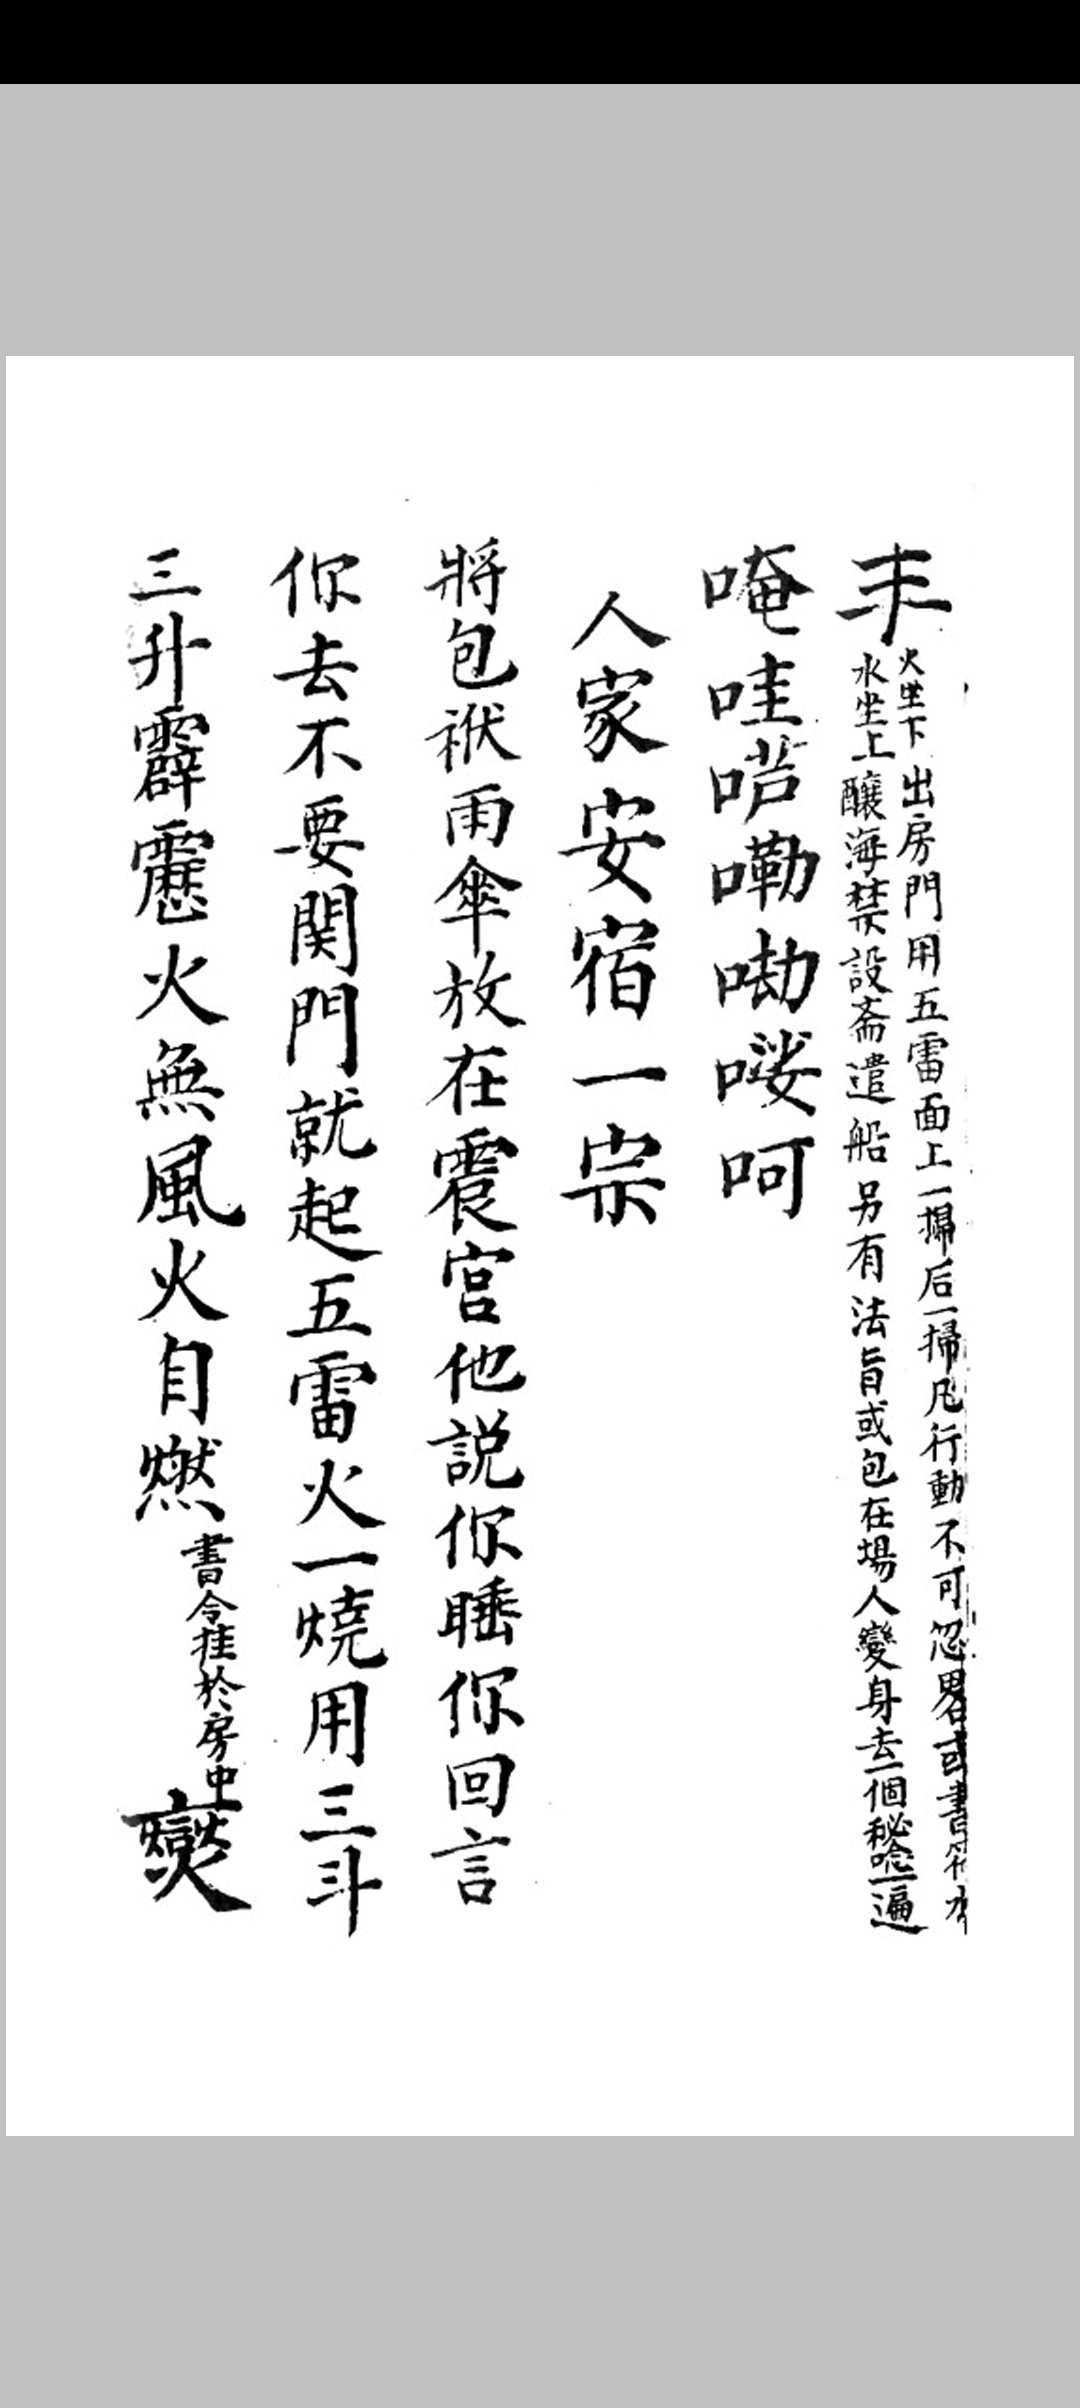 丰
火坐下出房門用五雷面上一掃后一掃凡行動不可忽畧或書符水
水坐上釀海禁設斋遣船另有法旨或包在場人變身去一個秘唸一遍
唵哇嘞呦哆呵
人家安宿一宗
將包袱雨傘放在震宮他説你睡你回言
你去不要関門就起五雷火一燒用三斗
三升霹靂火無風火自燃書令挂於房中